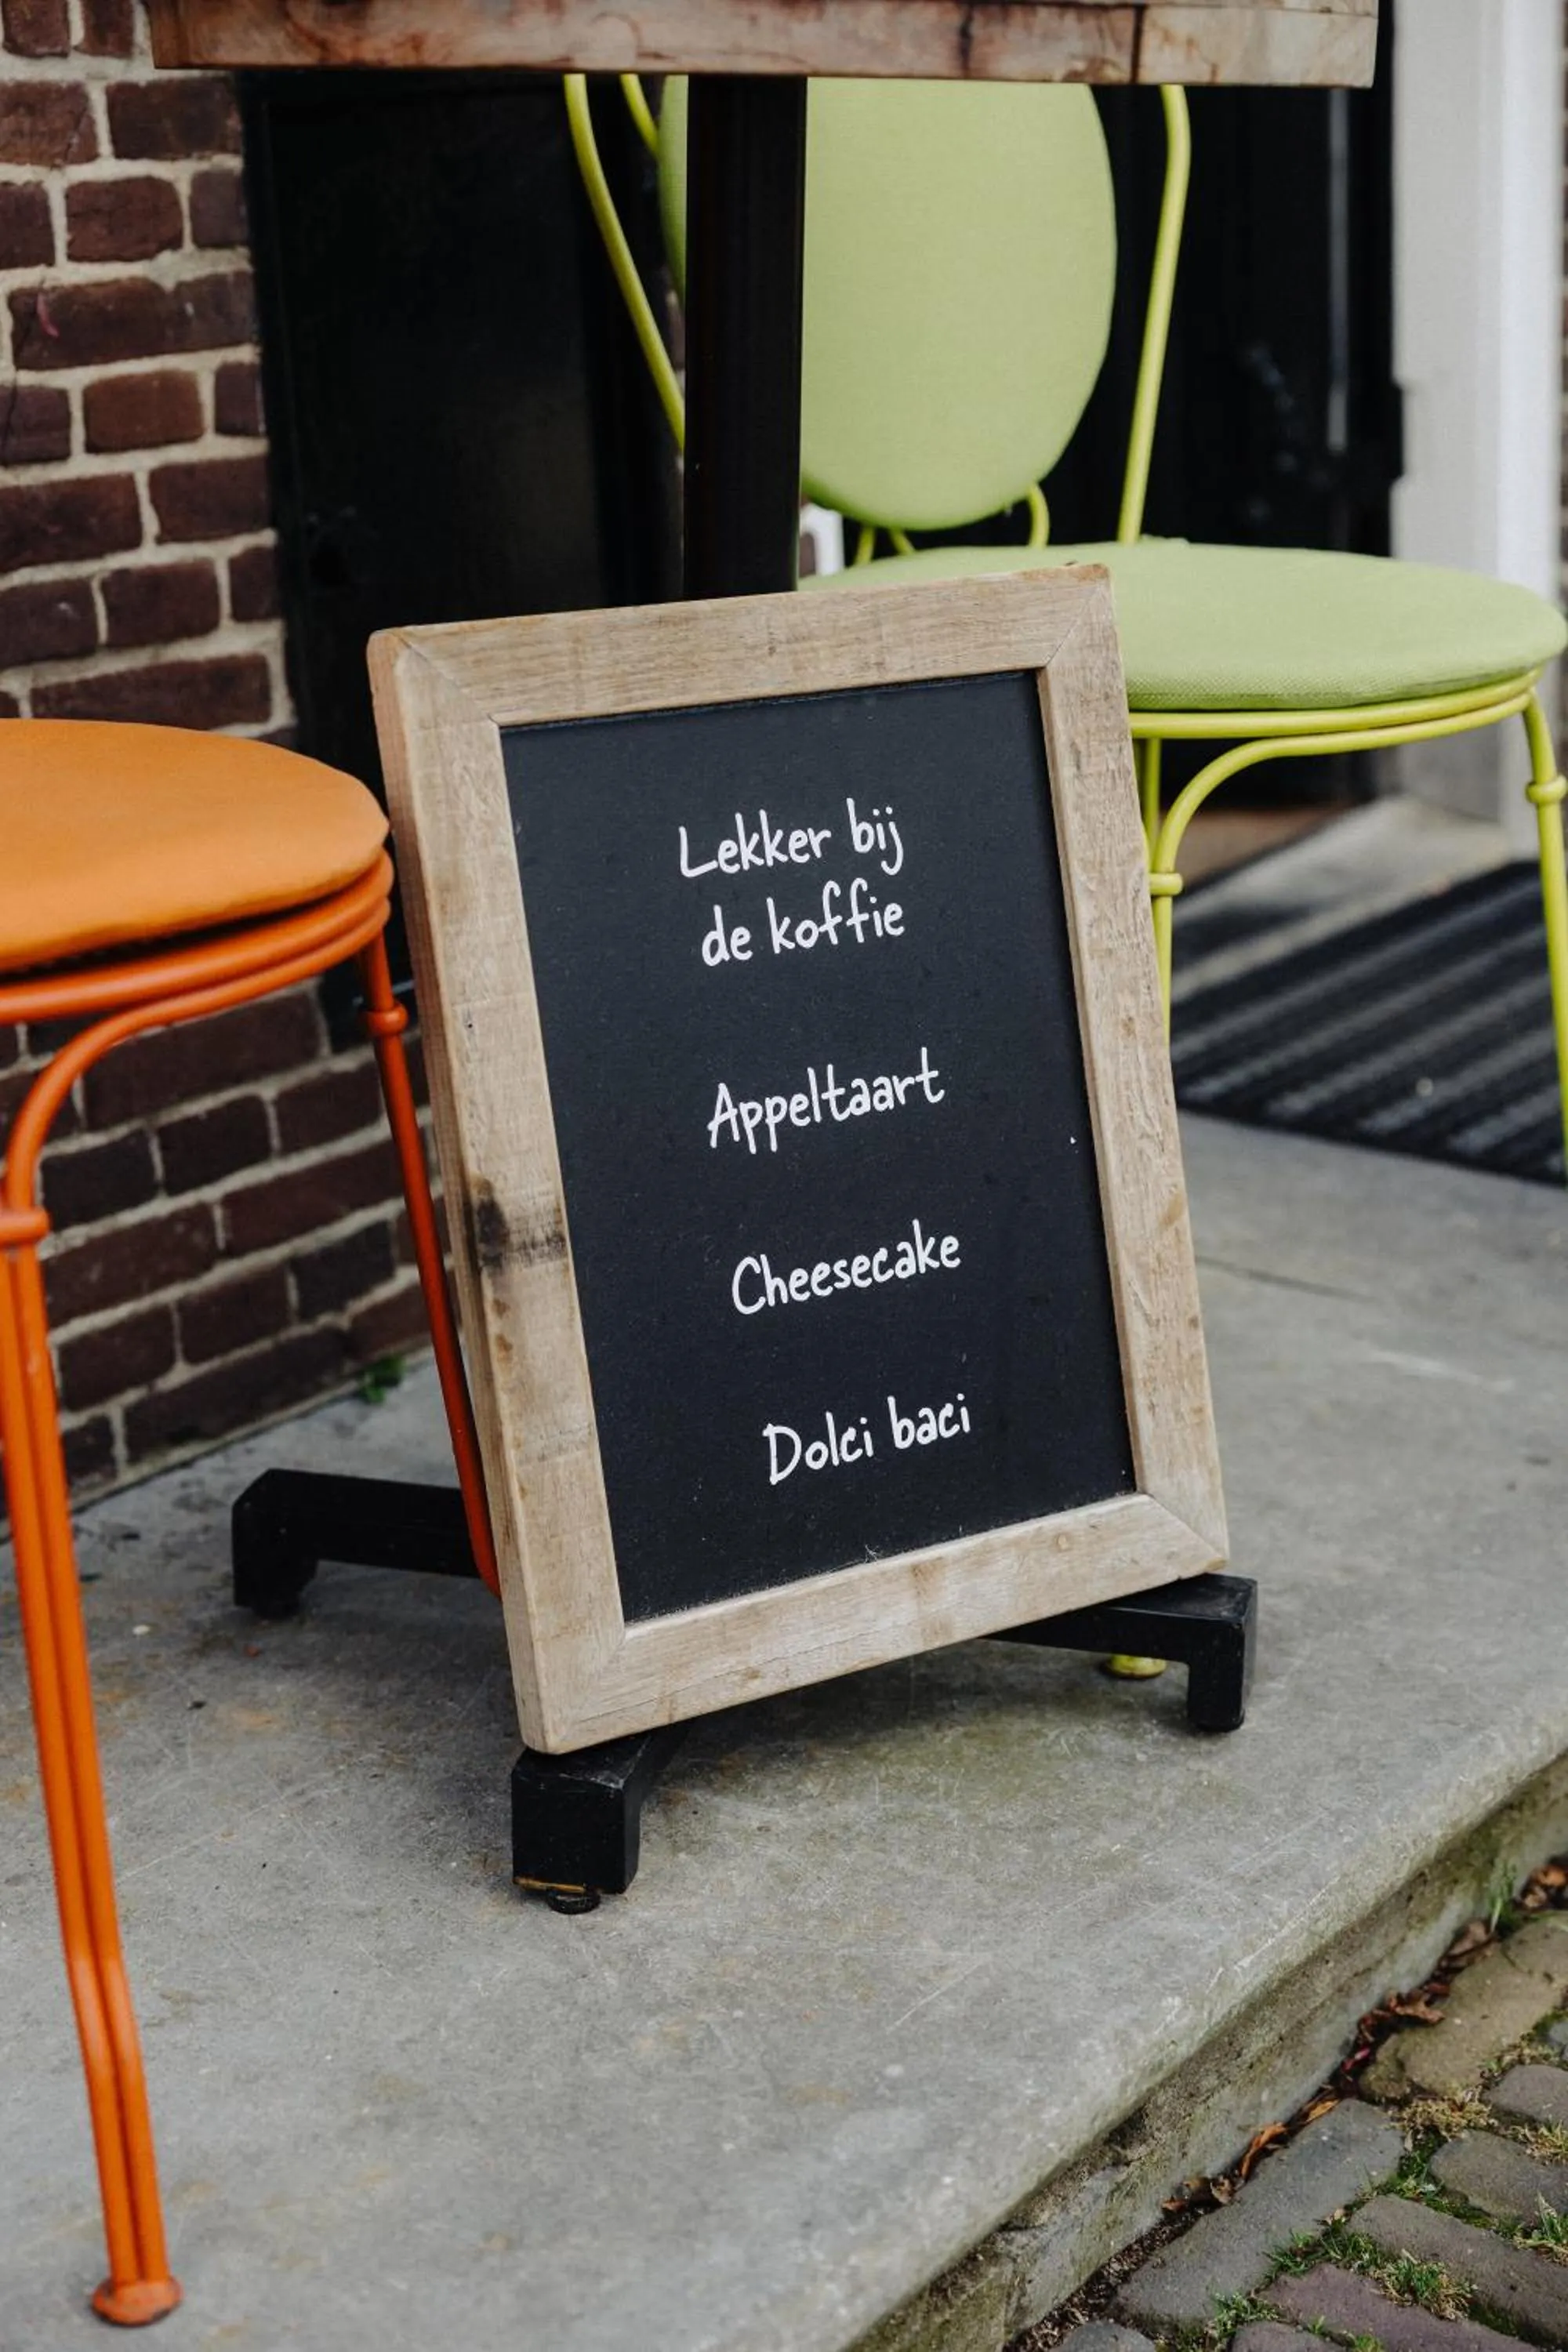 Lekker bij
de koffie
Appeltaart
Cheesecake
Dolci baci